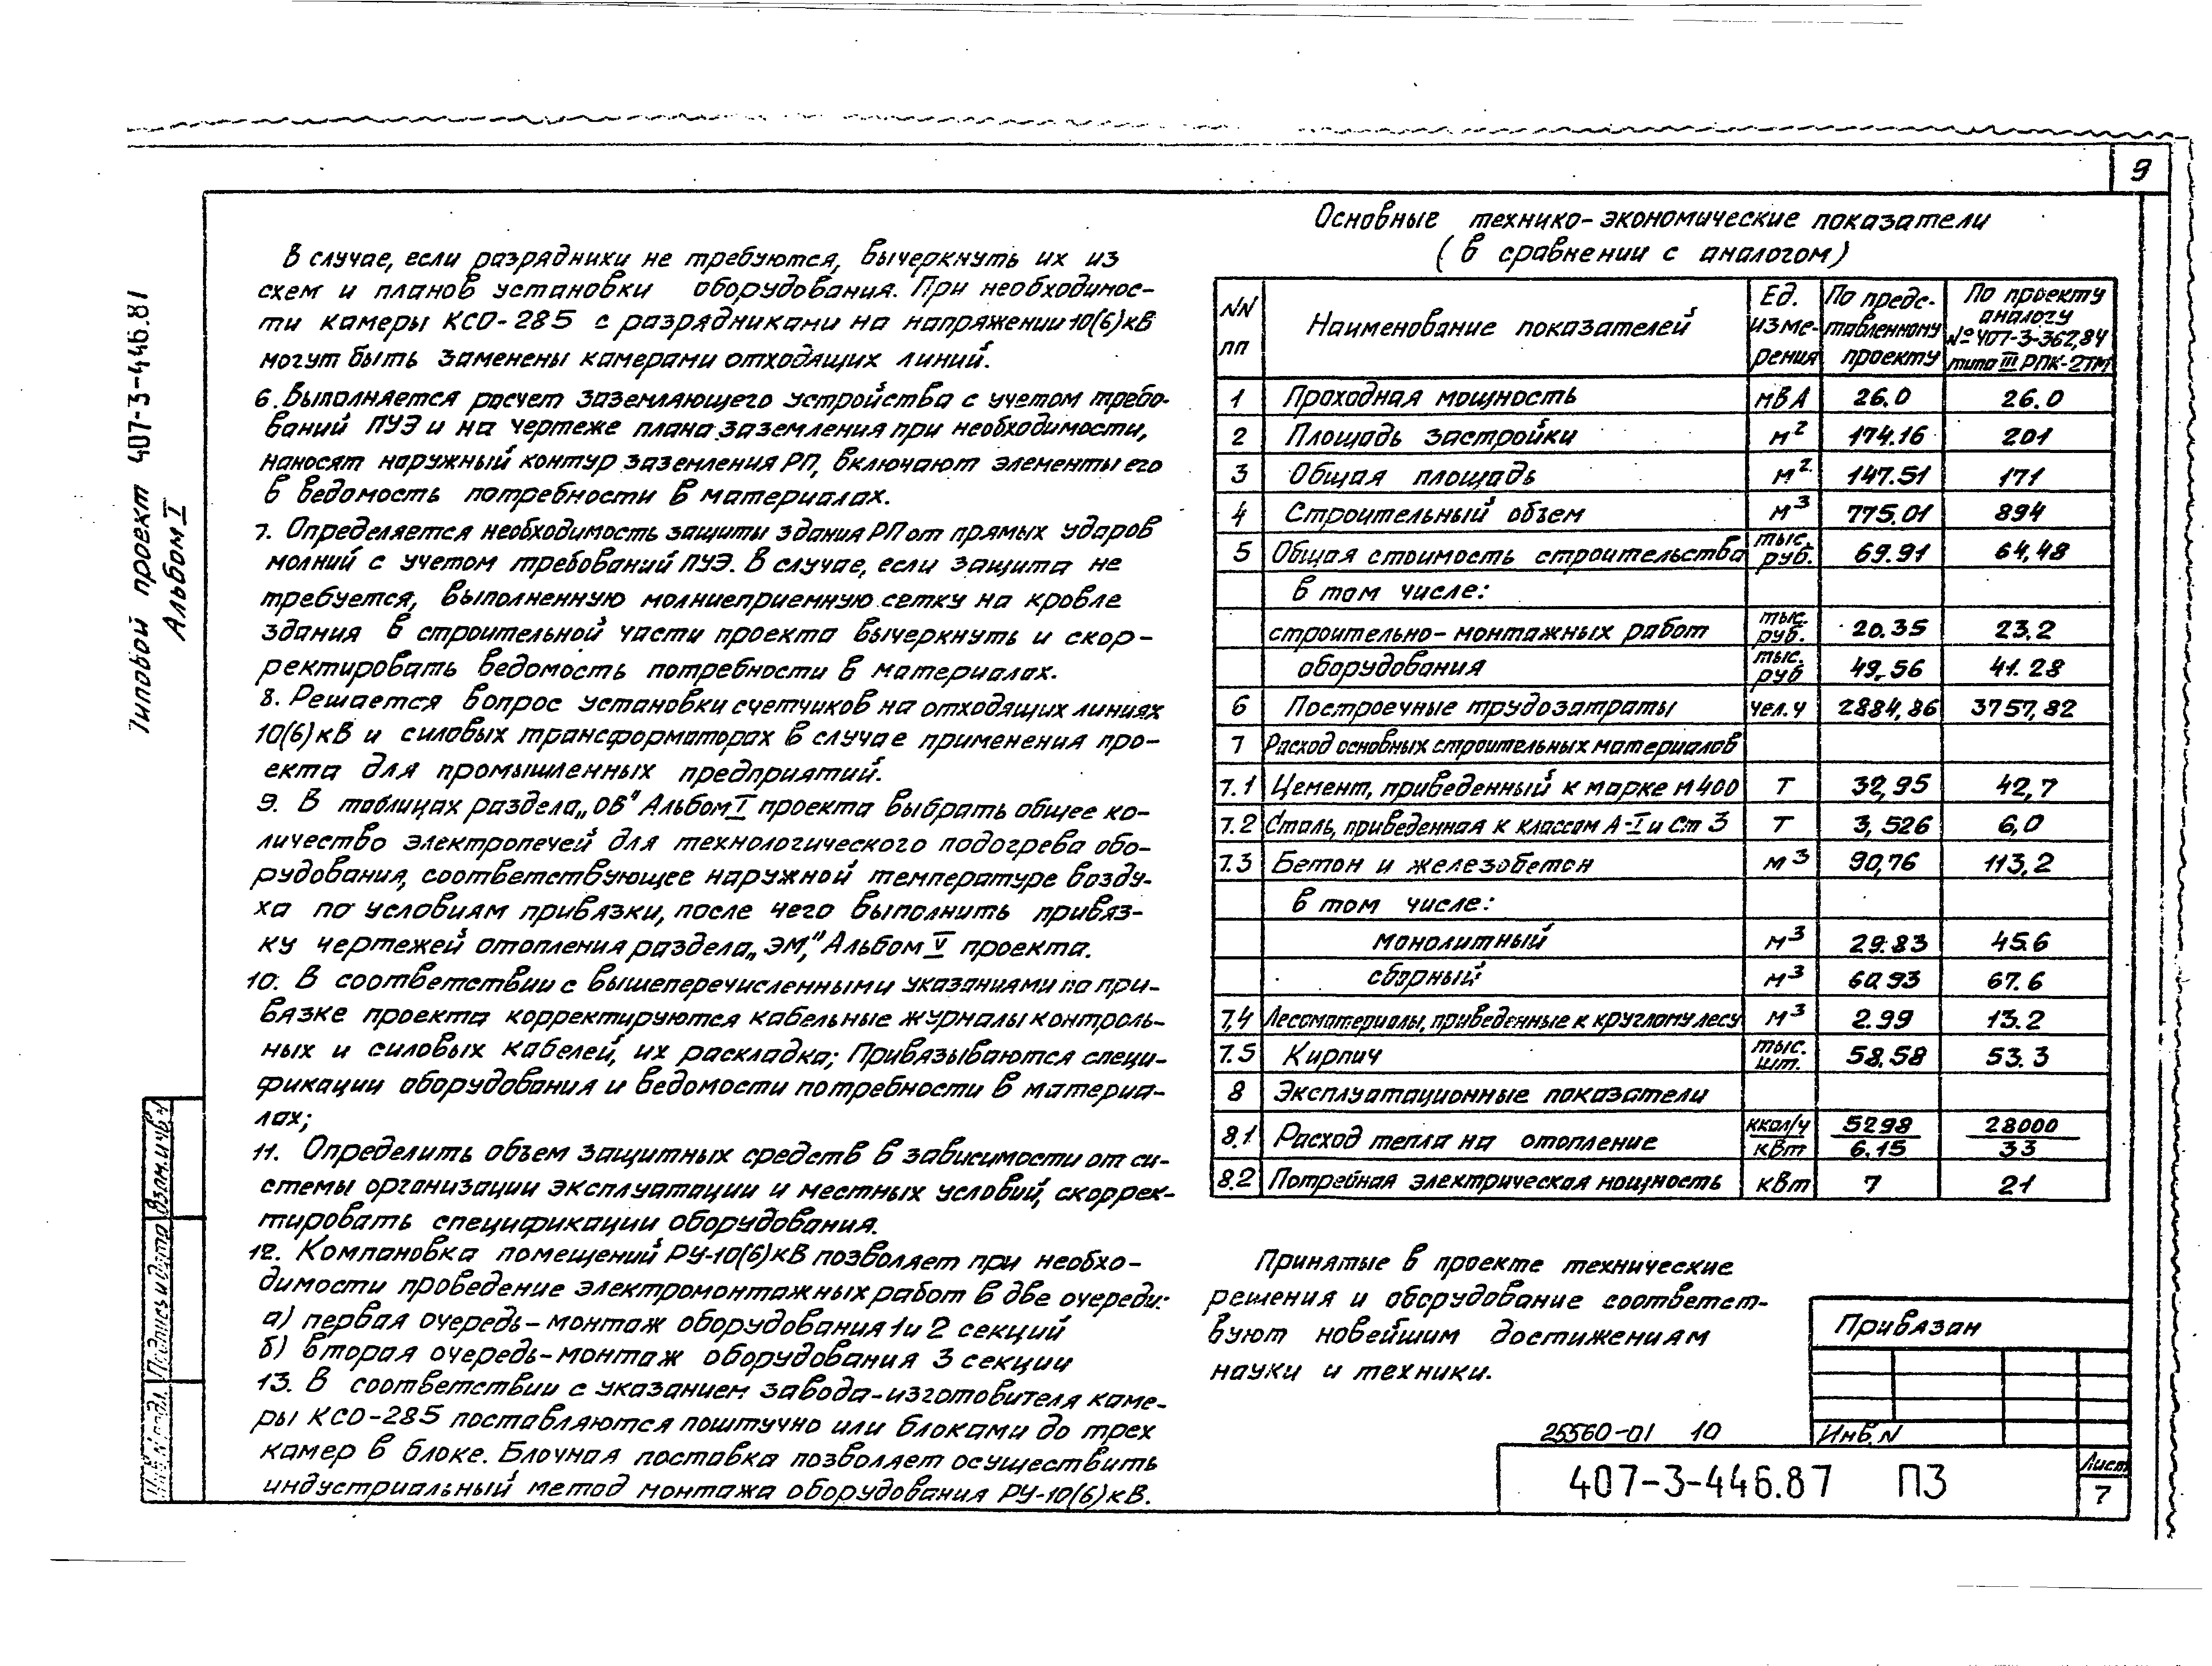 9
Типовой проект 407-3-446.87
Альбом I
В случае, если разрядники не требуются, вычеркнуть их из
схем и планов установки оборудования. При необходимос-
ти камеры КСО-285 с разрядниками на напряжении 10(6)кВ
могут быть заменены камерами отходящих линий.
6. Выполняется расчет заземляющего устройства с учетом требо-
ваний ПУЭ и на чертеже плана заземления при необходимости,
наносят наружный контур заземления РП, включают элементы его
в ведомость потребности в материалах.
7. Определяется необходимость защиты здания РП от прямых ударов
молний с учетом требований ПУЭ. В случае, если защита не
требуется, выполненную молниеприемную сетку на кровле
здания в строительной части проекта вычеркнуть и скор-
ректировать ведомость потребности в материалах.
8. Решается вопрос установки счетчиков на отходящих линиях
10(6)кВ и силовых трансформаторах в случае применения про-
екта для промышленных предприятий.
9. В таблицах раздела „ОВ" Альбом I проекта выбрать общее ко-
личество электропечей для технологического подогрева обо-
рудования, соответствующее наружной температуре возду-
ха по условиям привязки, после чего выполнить привяз-
ку чертежей отопления раздела „ЭМ," Альбом V проекта.
10. В соответствии с вышеперечисленными указаниями по при-
вязке проекта корректируются кабельные журналы контроль-
ных и силовых кабелей, их раскладка; Привязываются специ-
фикации оборудования и ведомости потребности в материа-
лах;
11. Определить объем защитных средств в зависимости от си-
стемы организации эксплуатации и местных условий, скоррек-
тировать спецификации оборудования.
12. Компановка помещений РУ-10(6)кВ позволяет при необхо-
димости проведение электромонтажных работ в две очереди:
а) первая очередь-монтаж оборудования 1и 2 секций
б) вторая очередь-монтаж оборудования 3 секции
13. В соответствии с указанием завода-изготовителя каме-
ры КСО-285 поставляются поштучно или блоками до трех
камер в блоке. Блочная поставка позволяет осуществить
индустриальный метод монтажа оборудования РУ-10(6)кВ.
Основные технико-экономические показатели
(в сравнении с аналогом)
NN пп | Наименование показателей | Ед. изме-рения | По предс-тавленному проекту | По проекту аналогу №407-3-362,84 типа III РПК-2ТМ
1 Проходная мощность мВА 26.0 26.0
2 Площадь застройки м² 174.16 201
3 Общая площадь м² 147.51 171
4 Строительный объем м³ 775.01 894
5 Общая стоимость строительства тыс. руб. 69.91 64,48
в том числе:
строительно-монтажных работ тыс. руб. 20.35 23.2
оборудования тыс. руб 49.56 41.28
6 Построечные трудозатраты чел.ч 2884,86 3757,82
7 Расход основных строительных материалов
7.1 Цемент, приведенный к марке М400 Т 32,95 42,7
7.2 Сталь, приведенная к классам А-I и Ст 3 Т 3,526 6,0
7.3 Бетон и железобетон м³ 90,76 113,2
в том числе:
монолитный м³ 29.83 45.6
сборный м³ 60.93 67.6
7.4 Лесоматериалы, приведенные к круглому лесу м³ 2.99 13.2
7.5 Кирпич тыс. шт. 58.58 53.3
8 Эксплуатационные показатели
8.1 Расход тепла на отопление ккал/ч квт 5298 6.15 28000 33
8.2 Потребная электрическая мощность квт 7 21
Принятые в проекте технические
решения и оборудование соответст-
вуют новейшим достижениям
науки и техники.
Привязан
Инв.N
25560-01 10
407-3-446.87 ПЗ
Лист
7
Взам.инв.N
Подпись и дата
Инв.N подл.